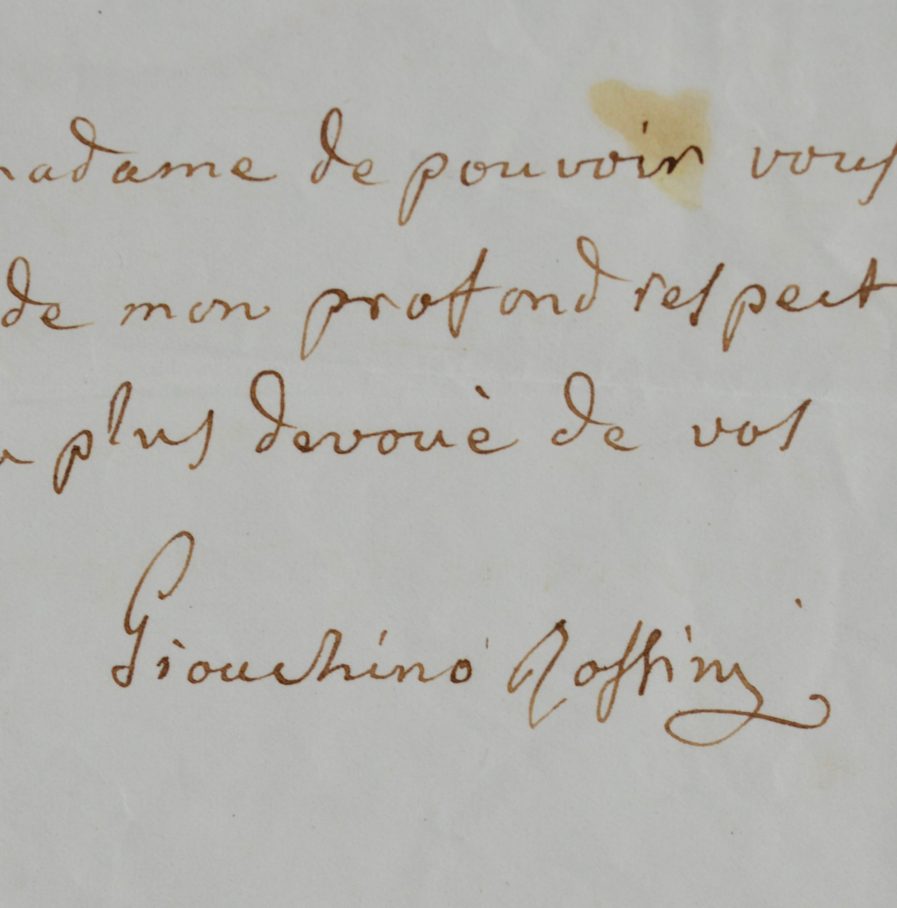 madame de pouvoir vous
de mon profond respect
plus devouè de vos
Giouchino Rossini